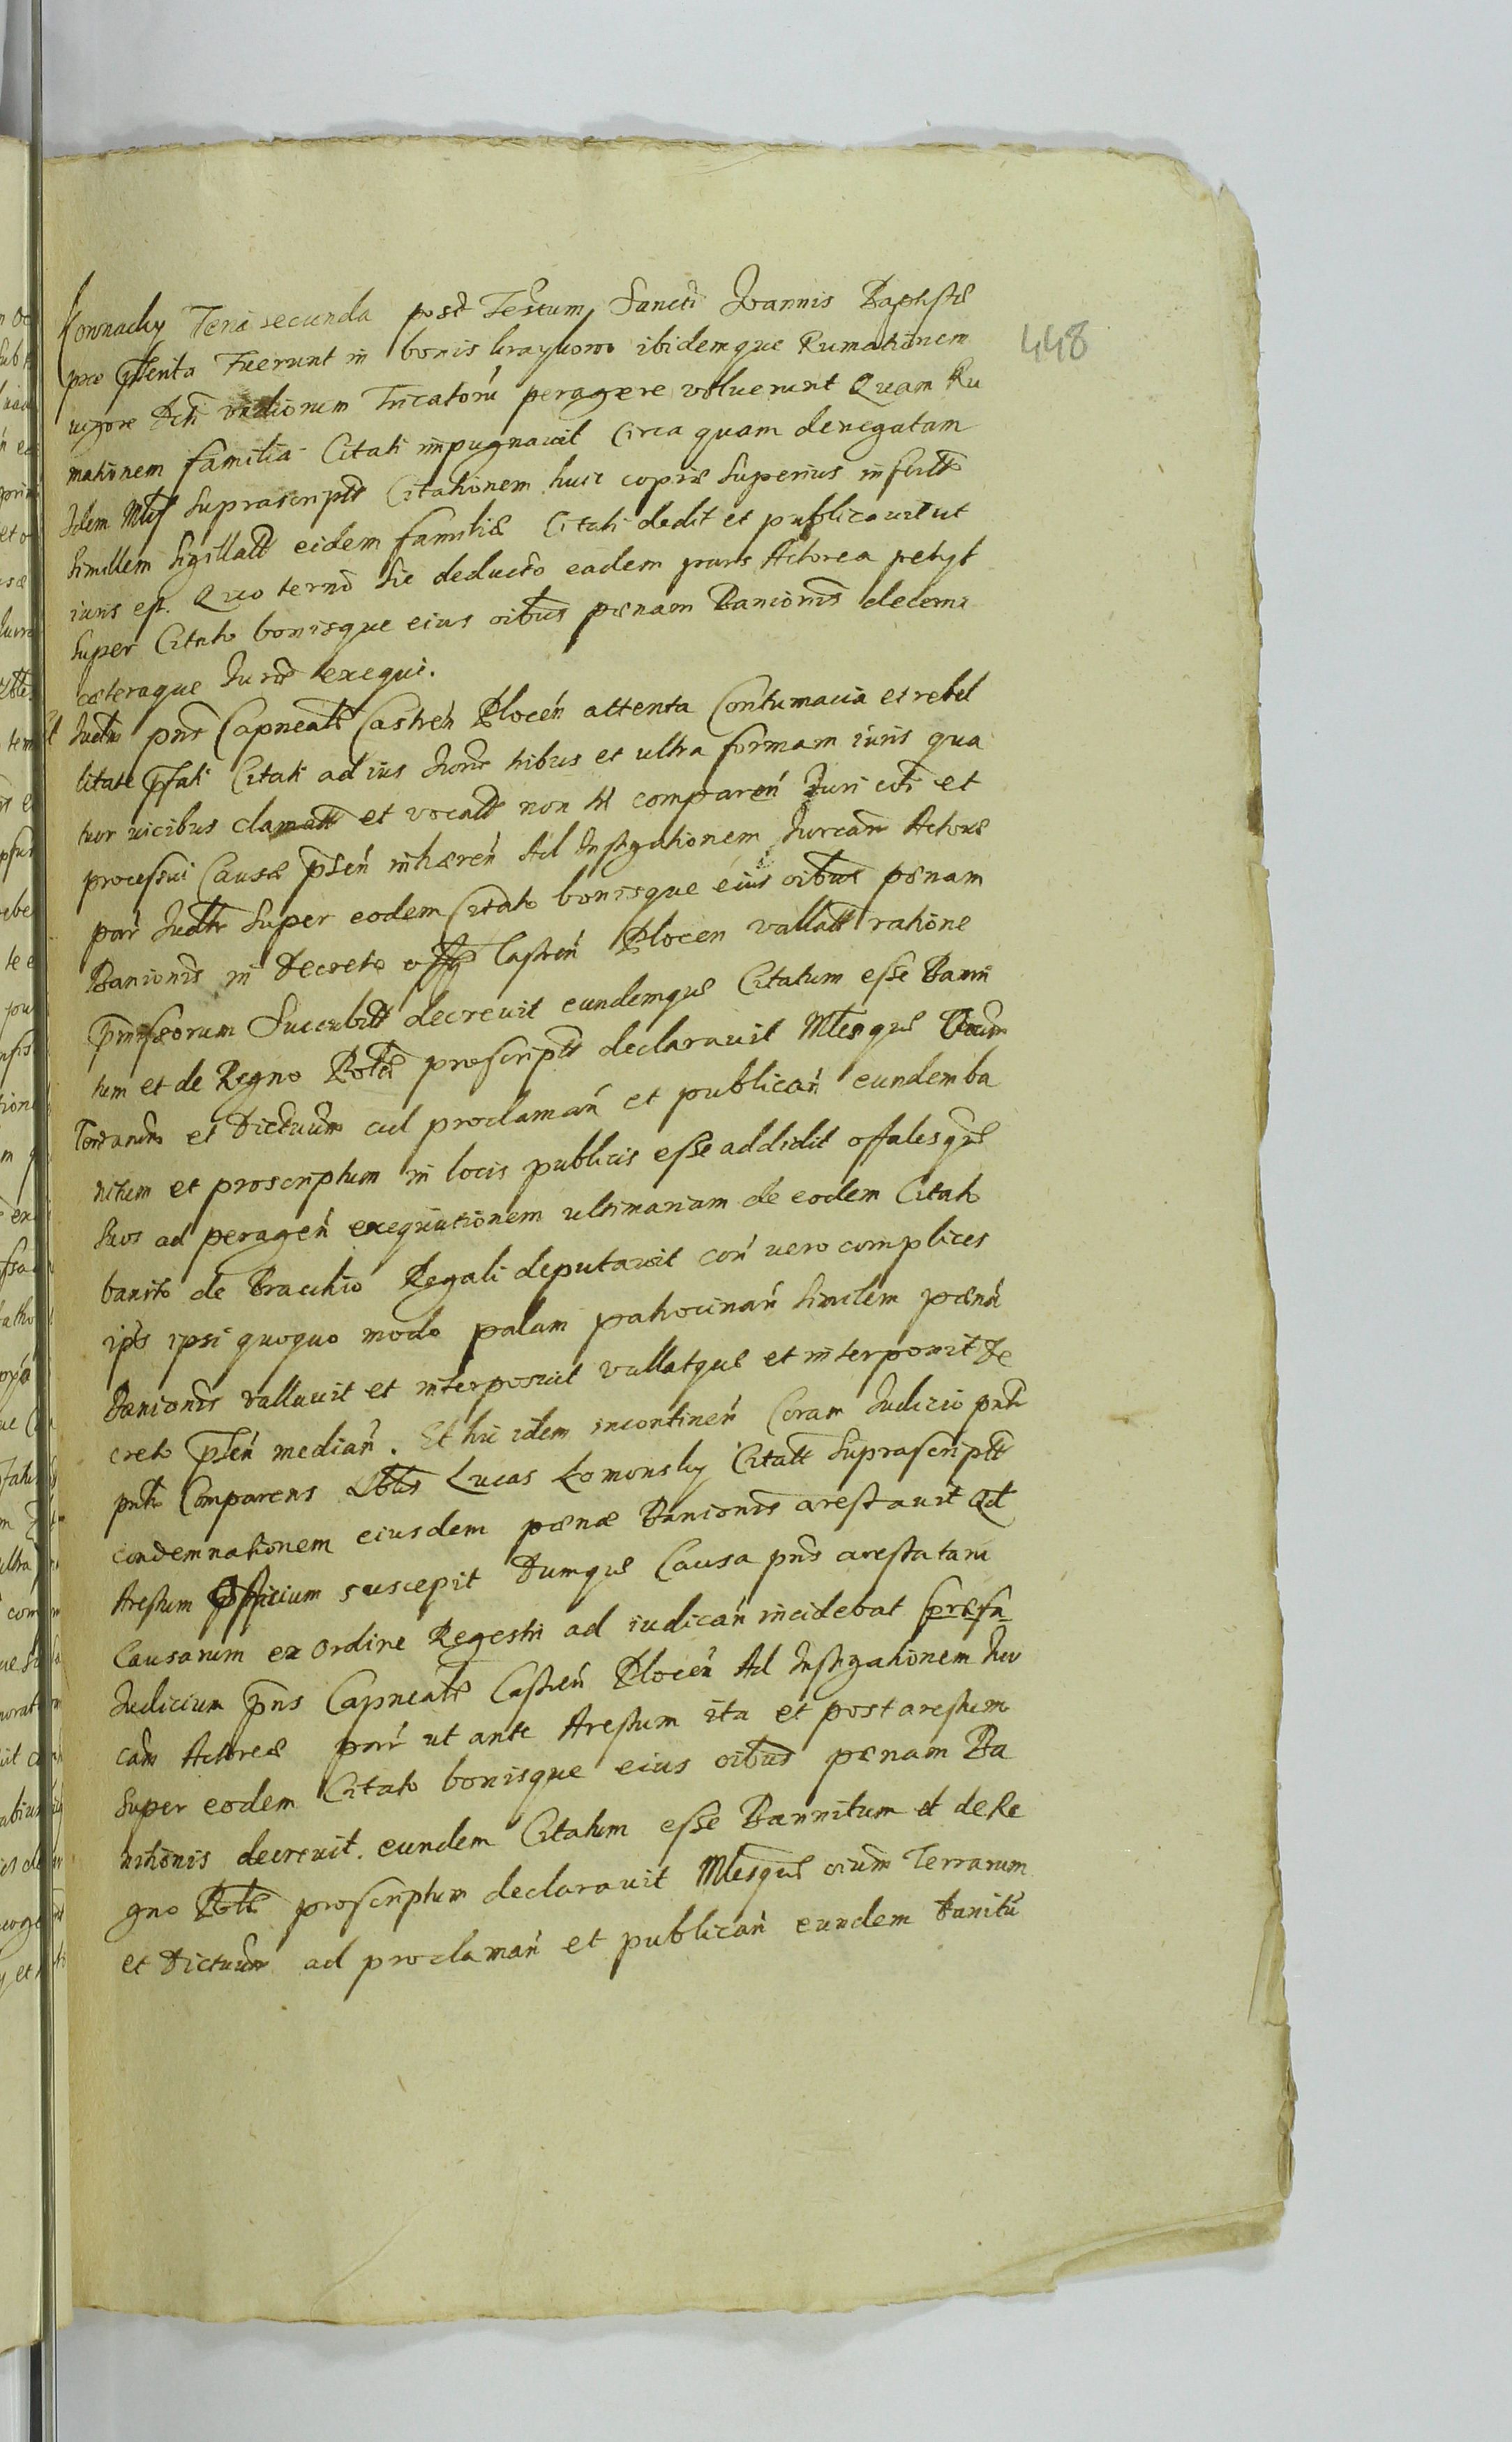 Kownacky Feria secunda post Festum Sancti Joannis Baptistæ
præ pñterita Fuerunt in bonis Kraykowo ibidemque Rumationem
uigore Dcti lucrorum Tricatorũ peragere voluerunt Quam Ru
mationem familia Citati impugnauit Circa quam denegatam
Idem Mlis Suprascriptt Citationem huic copiæ Superius insertæ
Similem Sigillatt eidem familiæ Citati dedit et publicauit ut
iuris est. Quo termõ Sic deducto eadem pars Actorea petyt
Super Citato bonisque eius oibus pœnam Banionis decerni
cæteraque Jurid exequi.
Judm pñs Capneale Castreñ Ploceñ attenta Contumacia et rebel
litate pfati Citati ad ius Juris tribus et ultra formam iuris qua
tuor uicibus clamatt et vocatt non tt compareñ Juri cõi et
processui Causæ pñteñ inhæreñ Ad Instigationem Jurcam Actoræ
parĩ Judm Super eodem Citato bonisque eius oibus pœnam
Banionis in Decreto offij Castreñ Plocen vallatt ratione
pmissorum Succubitt decreuit eundemque Citatum esse Banni
tum et de Regno Poloe proscriptt declarauit Mlesque Oium
Terrarum et Dictuum ad proclamañ et publicañ eundem ba
nitum et proscriptum in locis publicis esse addidit offalesque
Suos ad perageñ exequutionem ultimariam de eodem Citato
banito de Bracchio Regali deputauit coñ uero complices
ips ipsi quoquo modo palam patrocinañ Similem pœnã
Banionis vallauit et interposuit vallatque et interponit De
creto pñteñ mediañ. Et hic idem incontineñ Coram Judicio pnti
pntr Comparens Nblis Lucas Lomonsky Citatt Suprascriptt
condemnationem eiusdem pœnæ Banionis arestauit Qd
Arestum Officium suscepit Dumque Causa pñs arestatam
Causarum ex Ordine Regestri ad iudicañ incidebat præfa
Judicium pñs Capneale Castreñ Ploceñ Ad Instigationem Jur
cam Actoreæ parĩ ut ante Arestum ita et post arestum
Super eodem Citato bonisque eius oibus pœnam Ba
nitionis decreuit. eundem Citatum esse Bannitum et de Re
gno Poloe proscriptum declarauit Mlesque oium Terrarum
et Dictuum ad proclamañ et publicañ eundem banitũ
448